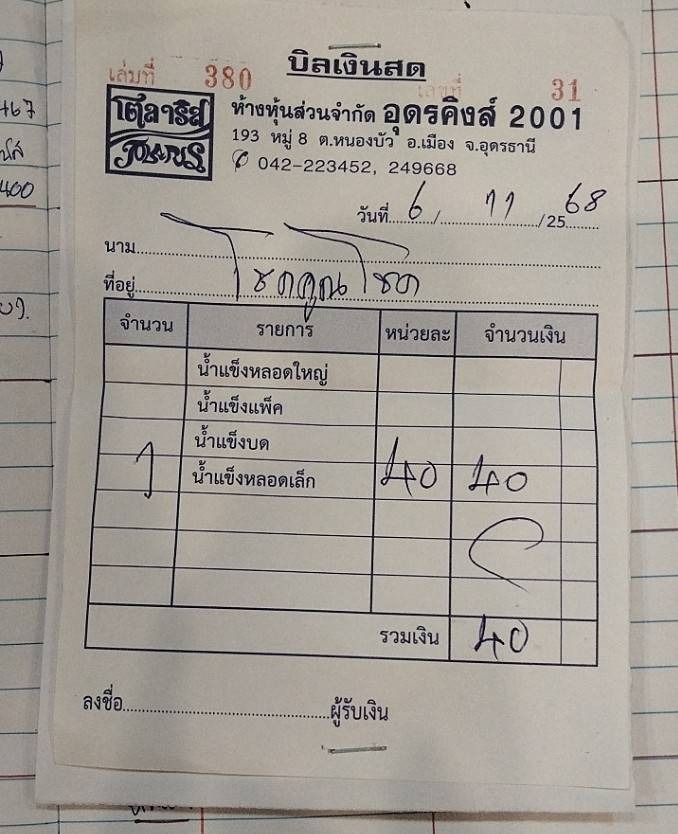 บิลเงินสด
เล่มที่ 380 เลขที่ 31
โต๊ลาริส
ห้างหุ้นส่วนจำกัด อุดรคิงส์ 2001
193 หมู่ 8 ต.หนองบัว อ.เมือง จ.อุดรธานี
042-223452, 249668
วันที่ 6 / 11 /25 68
นาม
ที่อยู่ โชคคูณโชค
จำนวน รายการ หน่วยละ จำนวนเงิน
น้ำแข็งหลอดใหญ่
น้ำแข็งแพ็ค
น้ำแข็งบด
1 น้ำแข็งหลอดเล็ก 40 40
รวมเงิน 40
ลงชื่อ ผู้รับเงิน
467
400